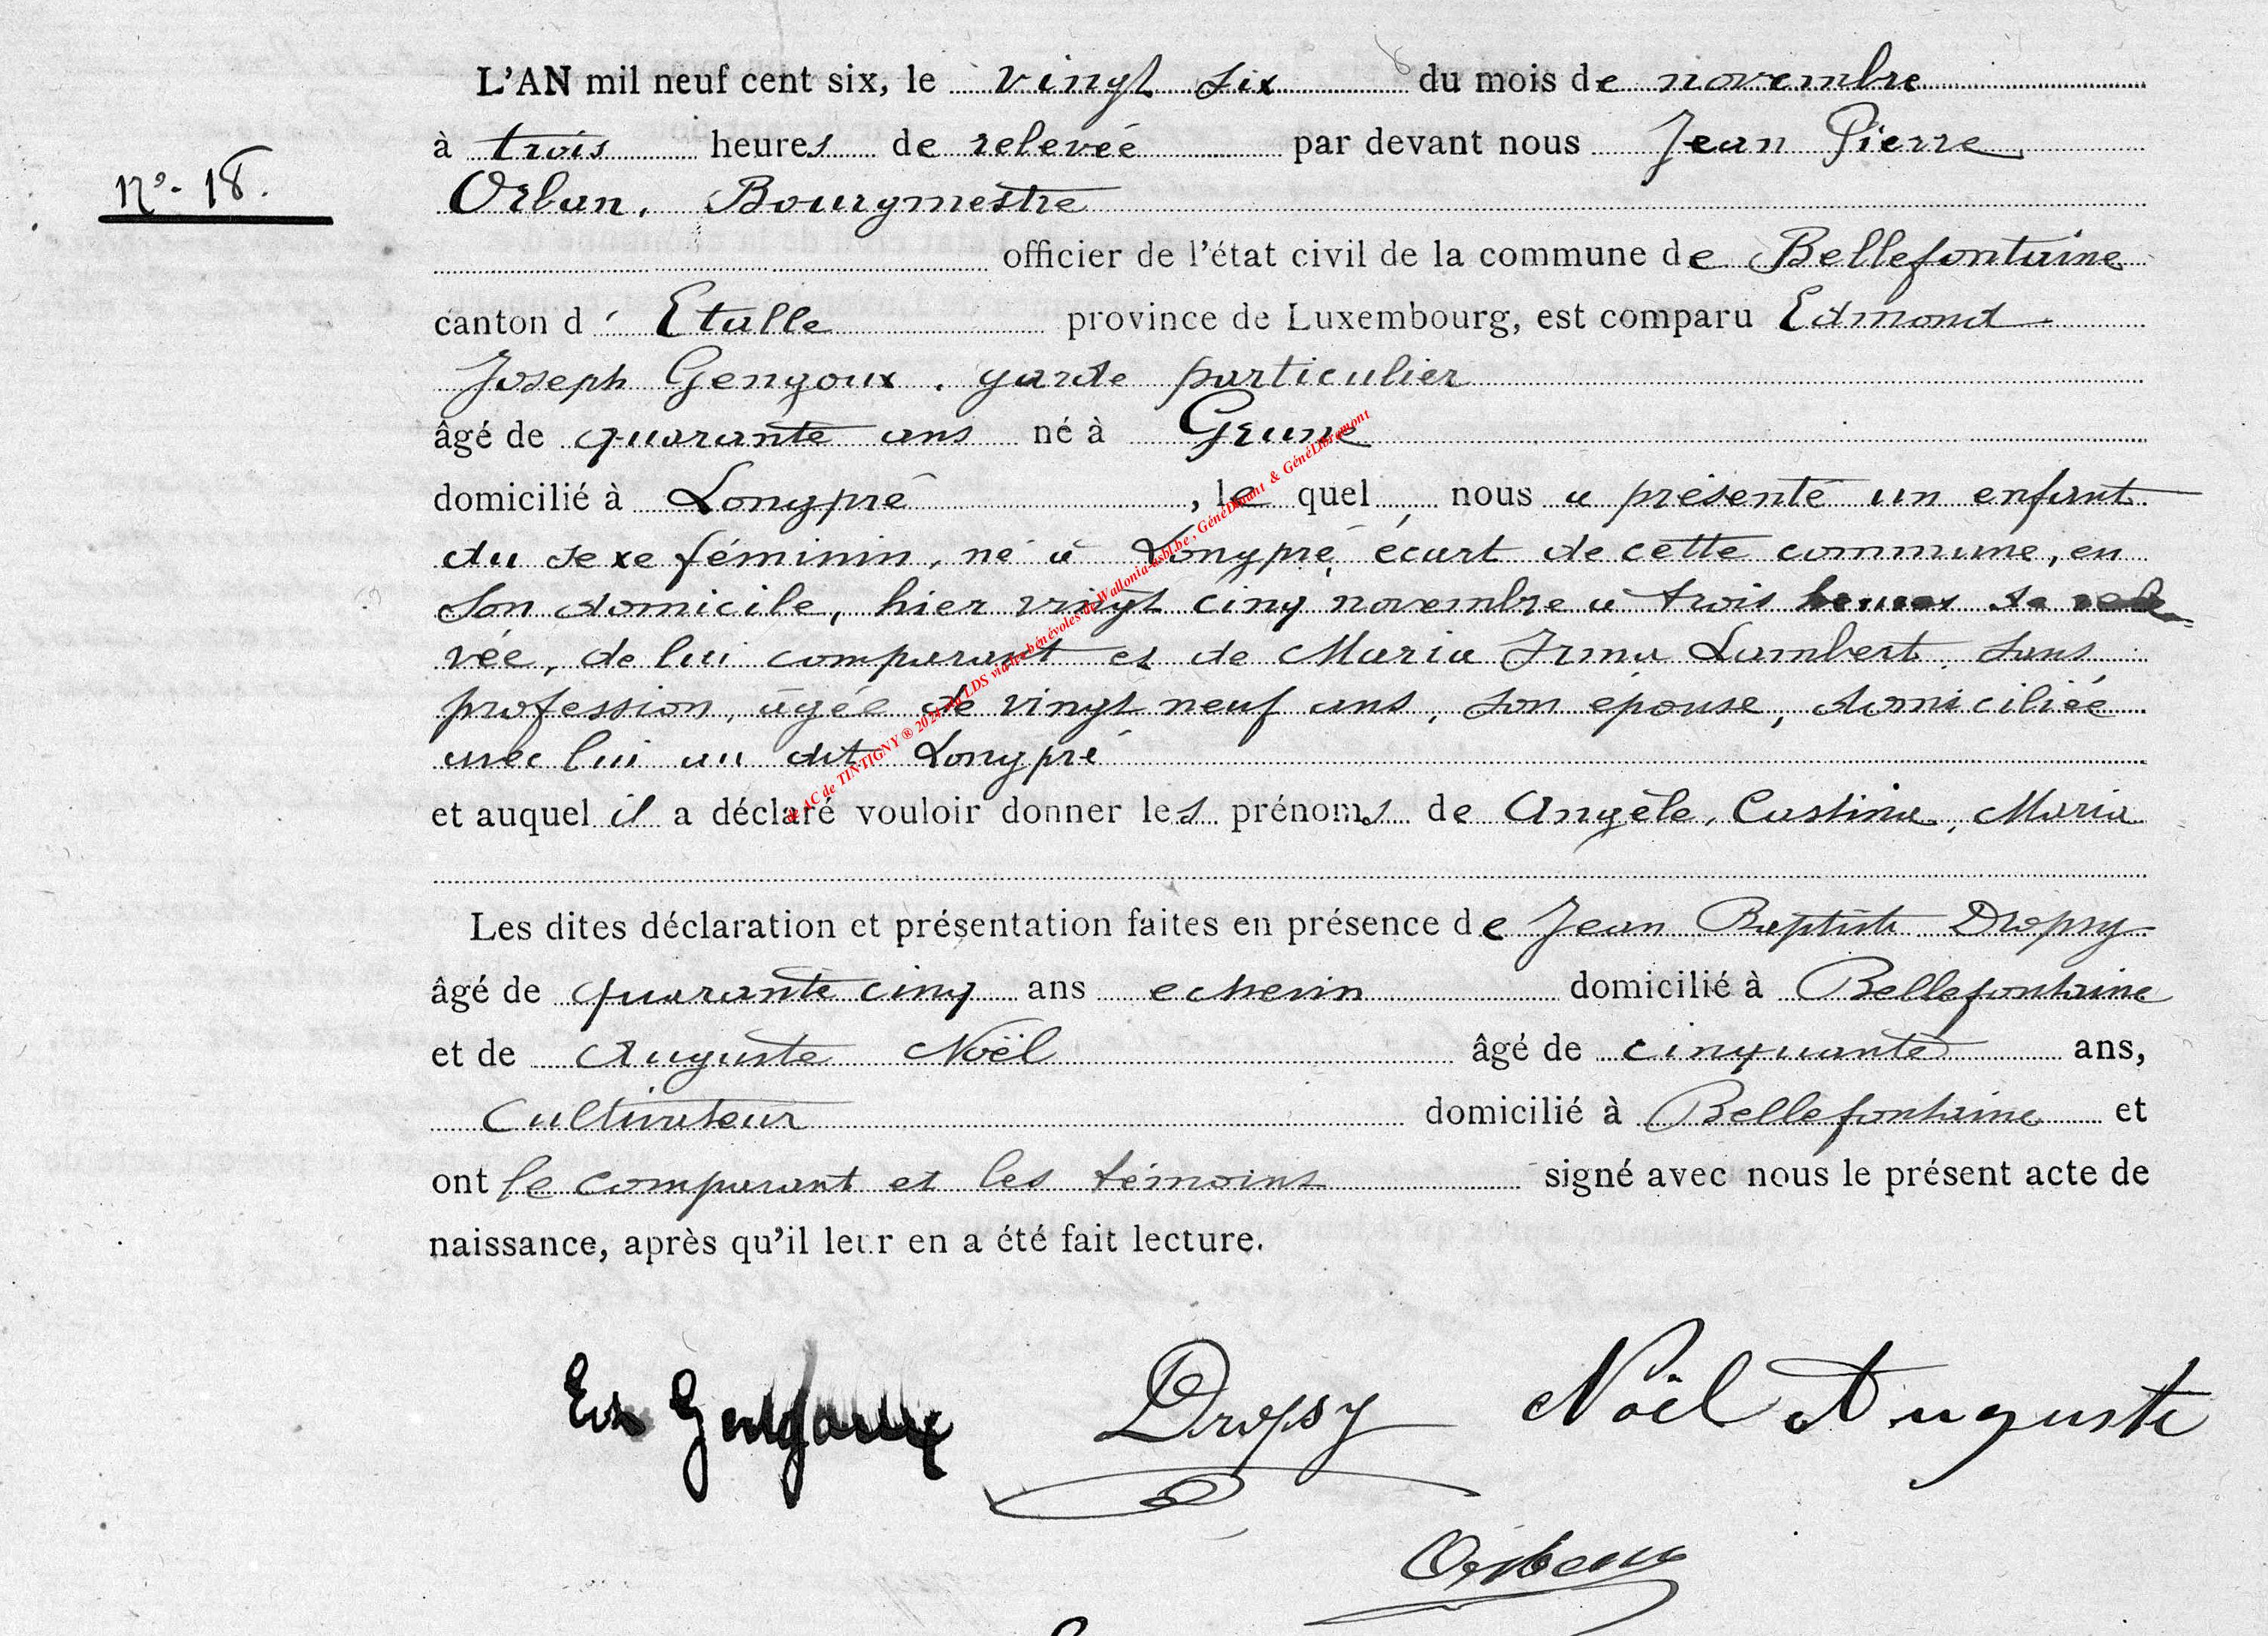 L'AN mil neuf cent six, le vingt six du mois de novembre
à trois heures de relevée par devant nous Jean Pierre
N°. 18.
Orban, Bourgmestre
officier de l'état civil de la commune de Bellefontaine
canton d'Etalle province de Luxembourg, est comparu Edmond
Joseph Gengoux, garde particulier
âgé de quarante ans né à Grune
domicilié à Longpré, lequel, nous a présenté un enfant
du sexe féminin, né à Longpré, écart de cette commune, en
son domicile, hier vingt cinq novembre à trois heures de rele-
vée, de lui comparant et de Maria Irma Lambert, sans
profession, âgée de vingt neuf ans, son épouse, domiciliée
avec lui au dit Longpré
et auquel il a déclaré vouloir donner les prénoms de Angèle, Castina, Maria
Les dites déclaration et présentation faites en présence de Jean Baptiste Dropsy
âgé de quarante cinq ans echevin domicilié à Bellefontaine
et de Auguste Noël âgé de cinquante ans,
Cultivateur domicilié à Bellefontaine et
ont le comparant et les témoins signé avec nous le présent acte de
naissance, après qu'il leur en a été fait lecture.
Ed Gengoux Dropsy Noël Auguste
Orban
AC de TINTIGNY ® 2024 LDS via les bénévoles de Wallonia-asbl.be, GénéDinant & GénéLibramont